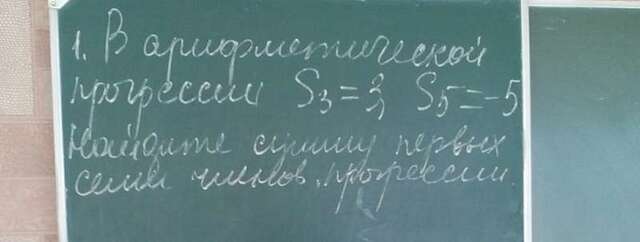 1. В арифметической
прогрессии S₃=3, S₅=-5
Найдите сумму первых
семи членов прогрессии